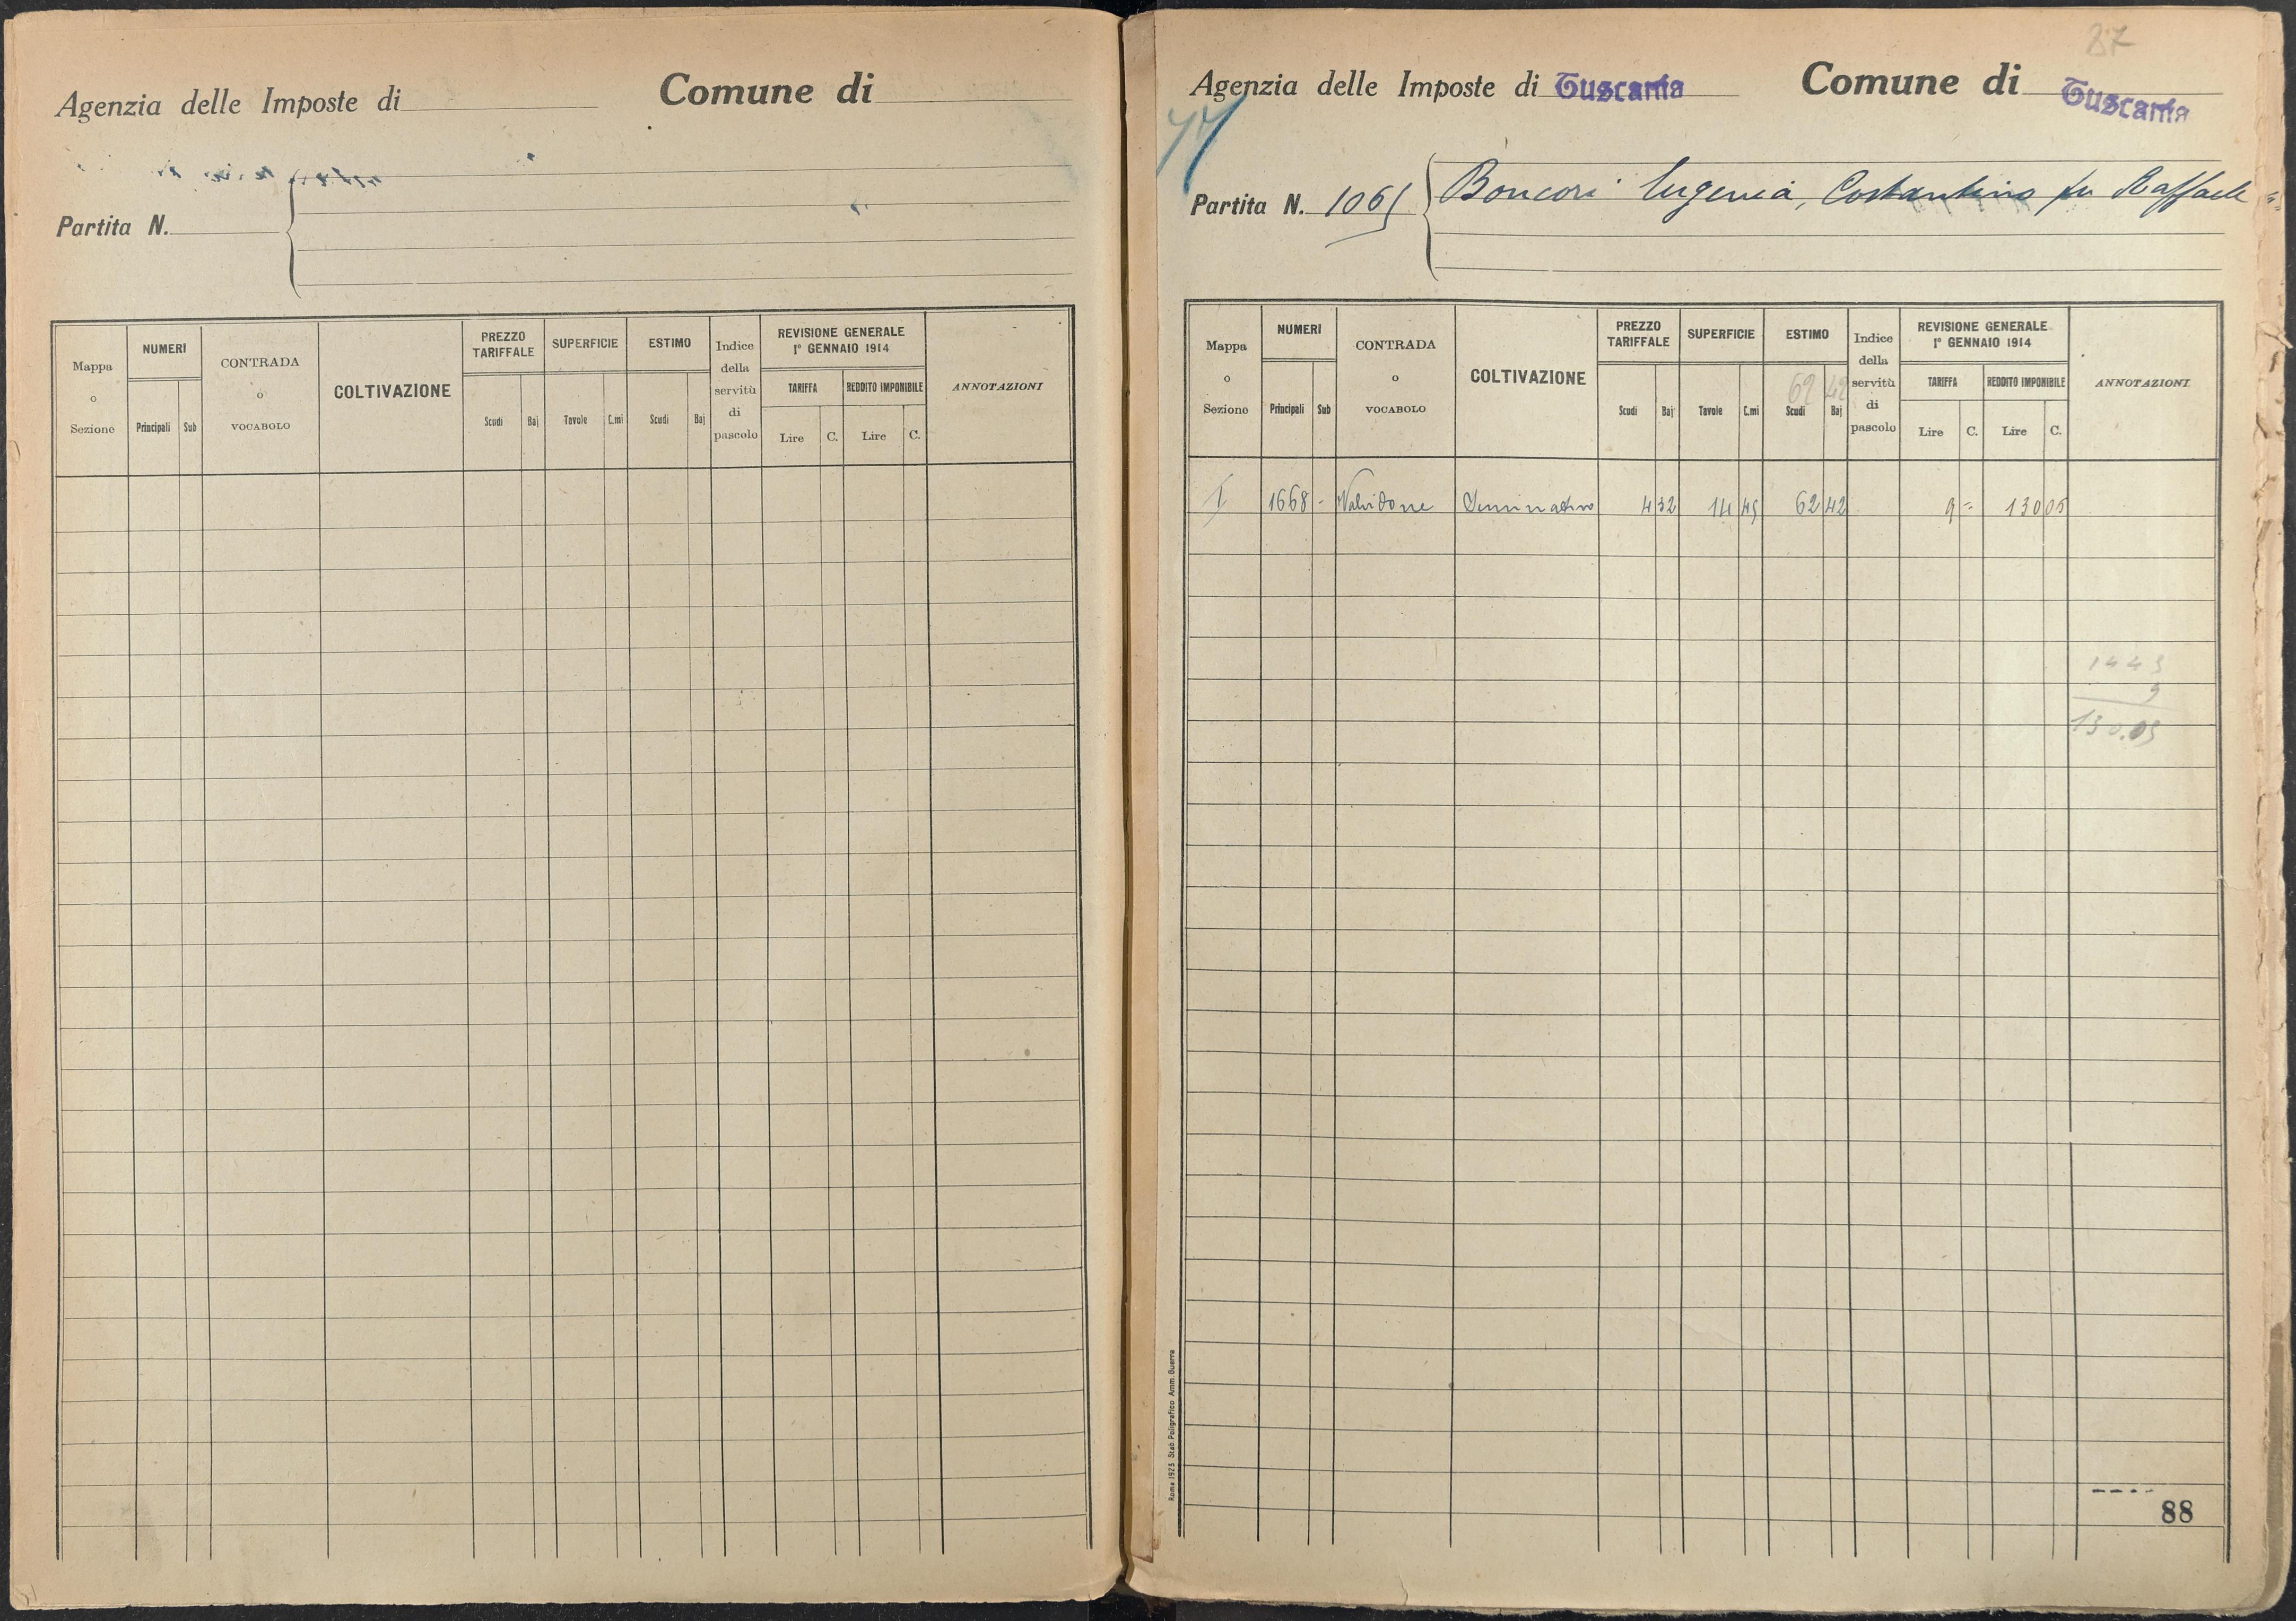 Agenzia delle Imposte di Comune di
Partita N.
Mappa o Sezione NUMERI CONTRADA o VOCABOLO COLTIVAZIONE PREZZO TARIFFALE SUPERFICIE ESTIMO Indice della servitù di pascolo REVISIONE GENERALE 1° GENNAIO 1914 ANNOTAZIONI
TARIFFA REDDITO IMPONIBILE
Principali Sub Scudi Baj Tavole C.mi Scudi Baj Lire C. Lire C.
87
Agenzia delle Imposte di Tuscania Comune di Tuscania
Partita N. 1065 Boncori Eugenia, Costantino fu Raffaele
Mappa o Sezione NUMERI CONTRADA o VOCABOLO COLTIVAZIONE PREZZO TARIFFALE SUPERFICIE ESTIMO Indice della servitù di pascolo REVISIONE GENERALE 1° GENNAIO 1914 ANNOTAZIONI
TARIFFA REDDITO IMPONIBILE
62 42
Principali Sub Scudi Baj Tavole C.mi Scudi Baj Lire C. Lire C.
I 1668 - Valvidone Seminativo 4 32 14 45 62 42 9 = 130 05
1445
9
130.05
Roma 1923 Stab. Poligrafico Amm. Guerra
88